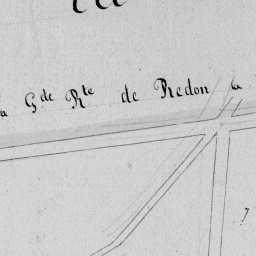 la Gde Rte de Redon à
7